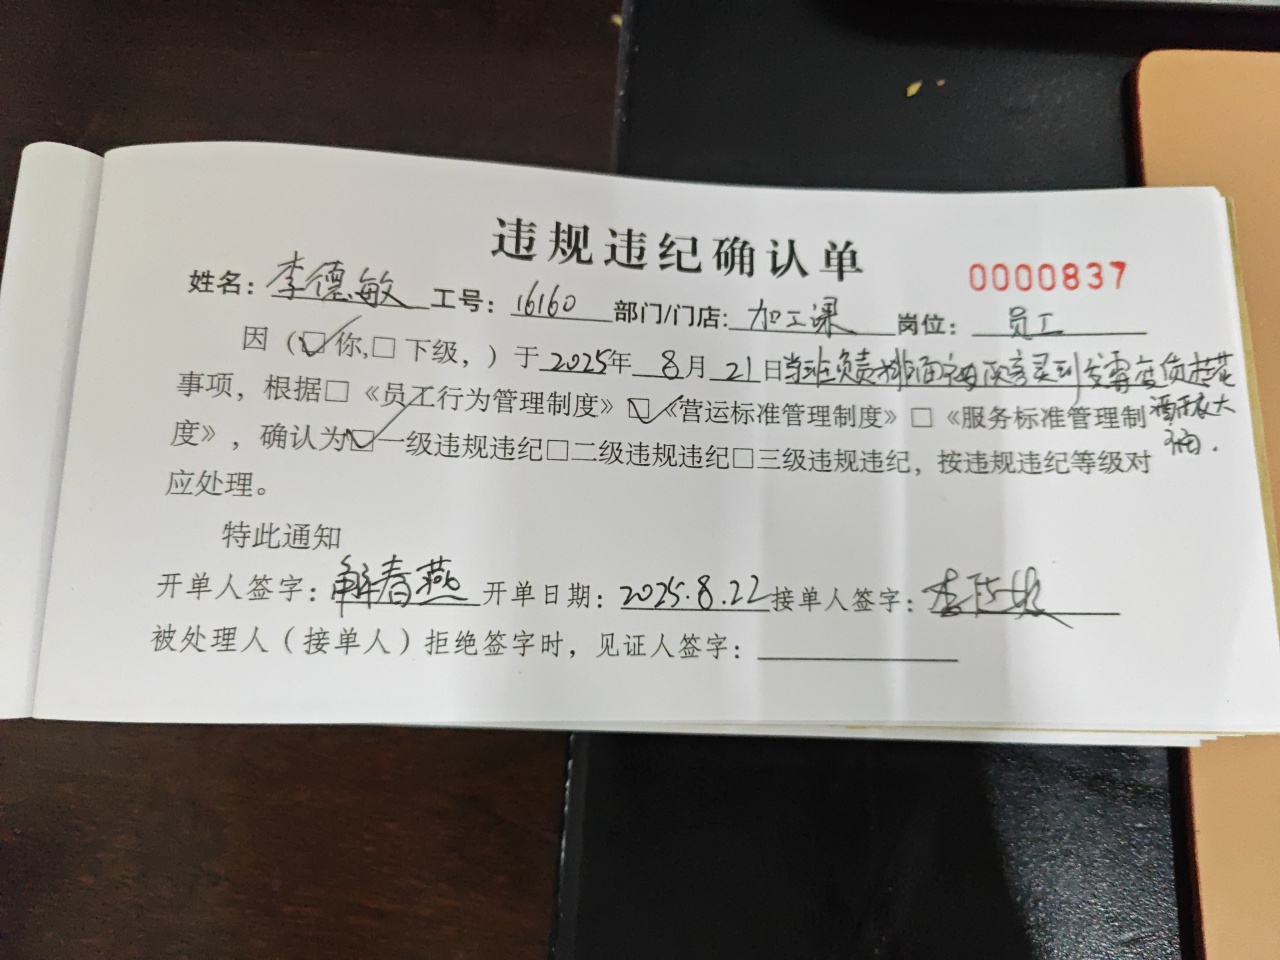 违规违纪确认单
0000837
姓名：李德敏 工号：16160 部门/门店：加工课 岗位：员工
因（☑你,□下级，）于2025年8月21日当班负责排面被顾客买到发霉变质
事项，根据□《员工行为管理制度》☑《营运标准管理制度》□《服务标准管理制
度》，确认为☑一级违规违纪□二级违规违纪□三级违规违纪，按违规违纪等级对
应处理。
特此通知
开单人签字：解春燕 开单日期：2025.8.22 接单人签字：李德敏
被处理人（接单人）拒绝签字时，见证人签字：